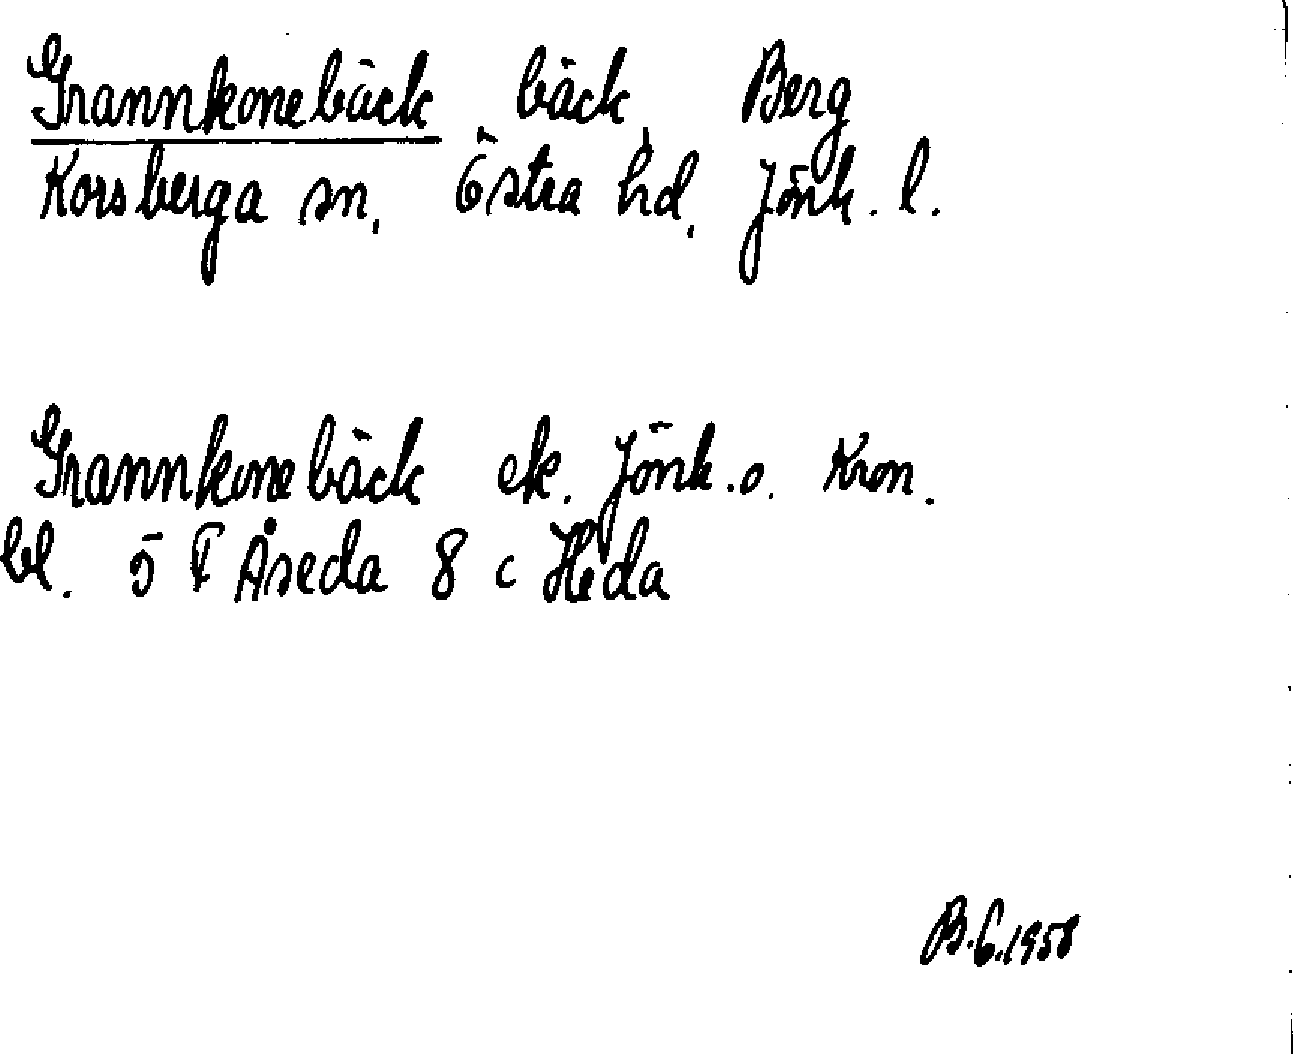 Grannkonebäck, bäck, Berg
Korsberga sn, Östra hd, Jönk. l.
Grannkonebäck ek. Jönk. o. Kron.
bl. 5 F Åseda 8 c Heda
B.G. 1958